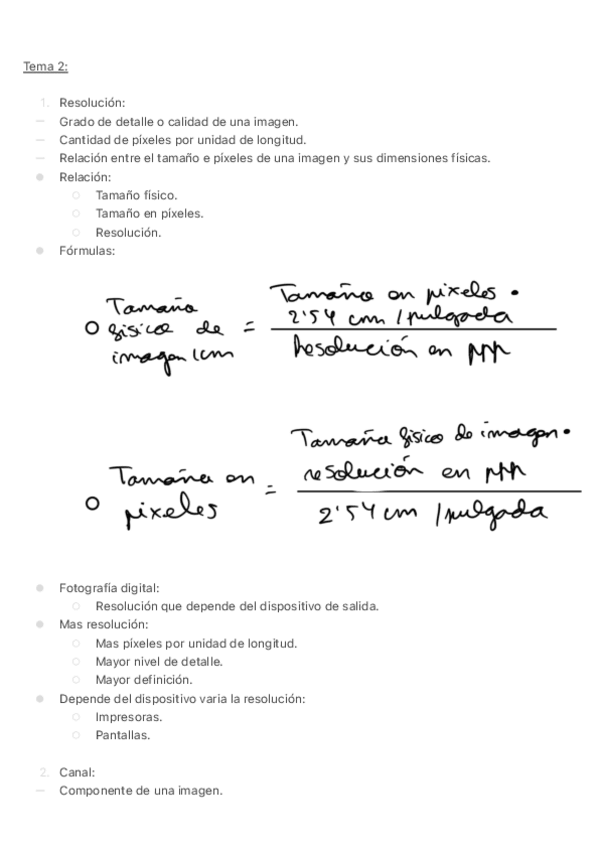 Tema 2:
1. Resolución:
– Grado de detalle o calidad de una imagen.
– Cantidad de píxeles por unidad de longitud.
– Relación entre el tamaño e píxeles de una imagen y sus dimensiones físicas.
● Relación:
○ Tamaño físico.
○ Tamaño en píxeles.
○ Resolución.
● Fórmulas:
○ Tamaño físico de imagen/cm = Tamaño en pixeles · 2'54 cm / pulgada
Resolución en ppp
○ Tamaño en pixeles = Tamaño físico de imagen · resolución en ppp
2'54 cm / pulgada
● Fotografía digital:
○ Resolución que depende del dispositivo de salida.
● Mas resolución:
○ Mas píxeles por unidad de longitud.
○ Mayor nivel de detalle.
○ Mayor definición.
● Depende del dispositivo varia la resolución:
○ Impresoras.
○ Pantallas.
2. Canal:
– Componente de una imagen.